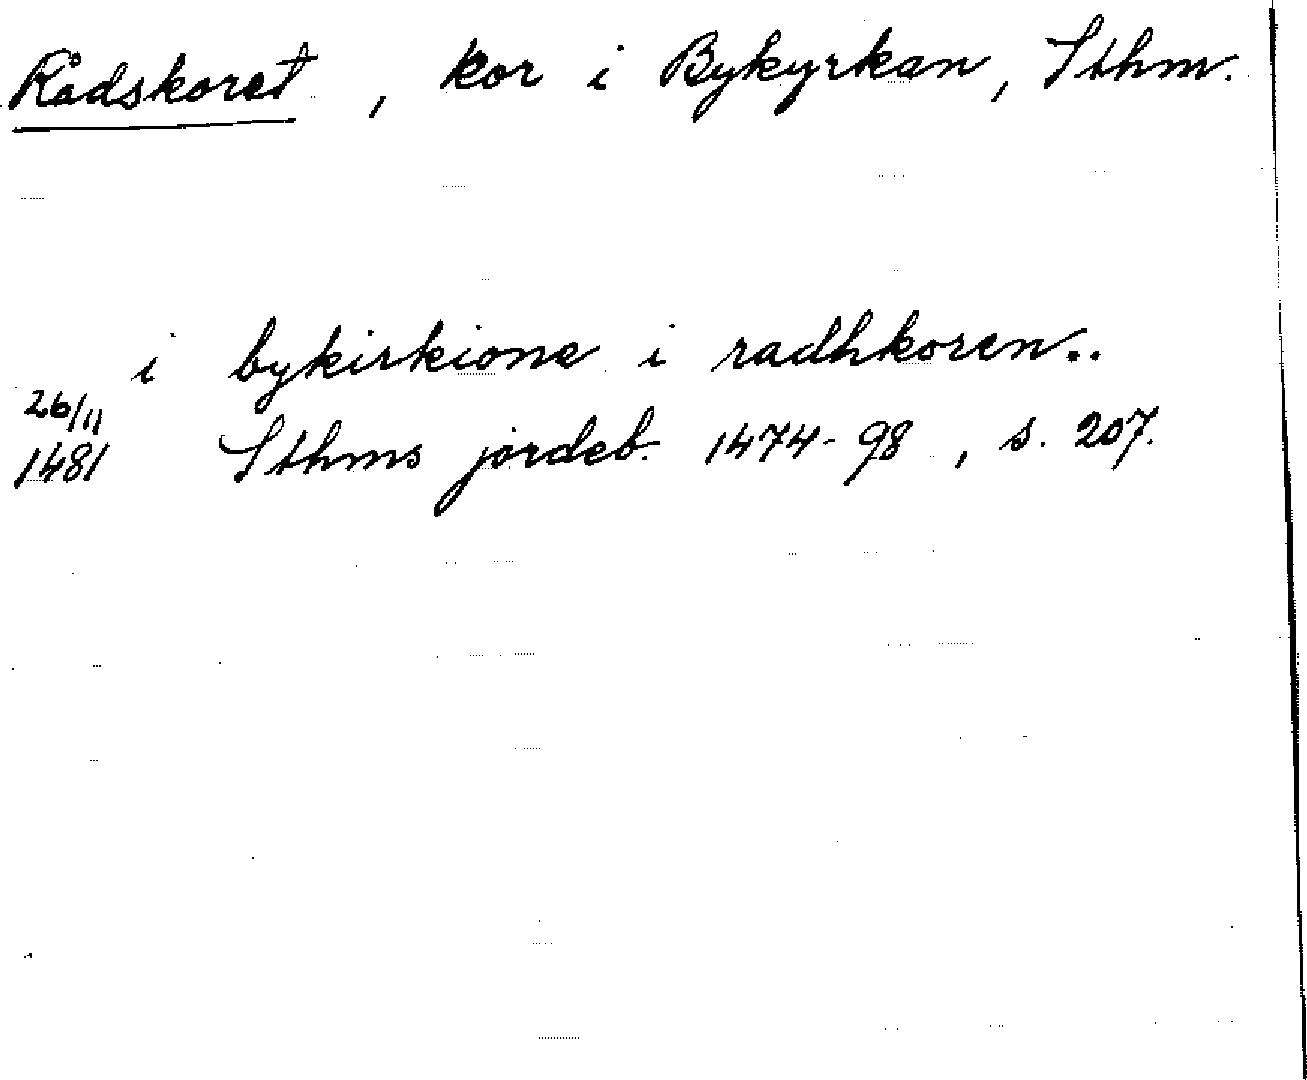 Rådskoret, kor i Bykyrkan, Sthm.
i bykirkione i radhkoren..
26/11
1481 Sthms jordeb. 1474-98, s. 207.